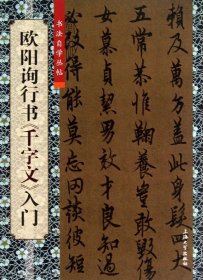 书法自学丛帖
欧阳询行书《千字文》入门
賴及萬方蓋此身髮四大
五常恭惟鞠養豈敢毀傷
女慕貞絜男效才良知過
必改得能莫忘罔談彼短
上海大学出版社